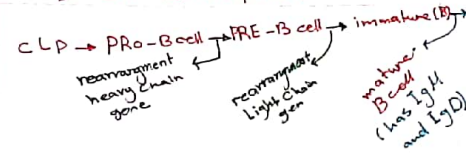 CLP → PRO-B cell → PRE-B cell → immature (B) →
rearrangment
heavy chain
gene
rearrangment
Light chain
gen
mature
B cell
(has IgM
and IgD)